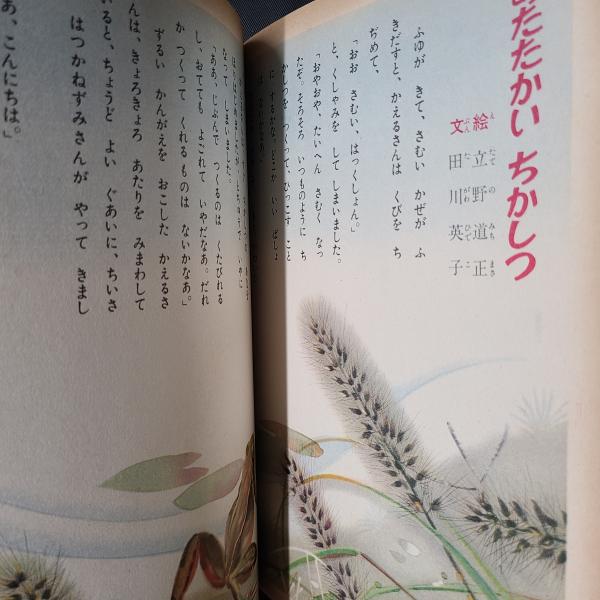 あたたかい ちかしつ
絵 立野道正
え たての みちまさ
文 田川英子
ぶん たがわ ひでこ
ふゆが きて、さむい かぜが ふ
きだすと、かえるさんは くびを ち
ぢめて、
「おお さむい、はっくしょん。」
と、くしゃみを して しまいました。
「おやおや、たいへん さむく なっ
たぞ。そろそろ いつものように ち
かしつを つくって ひっこす こと
に するかな。どこか いい ばしょ
は
なって しまいました。
「ああ、じぶんで つくるのは くたびれる
し、おてても よごれて いやだなあ。だれ
か つくって くれるものは ないかなあ。」
ずるい かんがえを おこした かえるさ
んは、きょろきょろ あたりを みまわして
いると、ちょうど よい ぐあいに、ちいさ
はつかねずみさんが やって きまし
あ、こんにちは。」